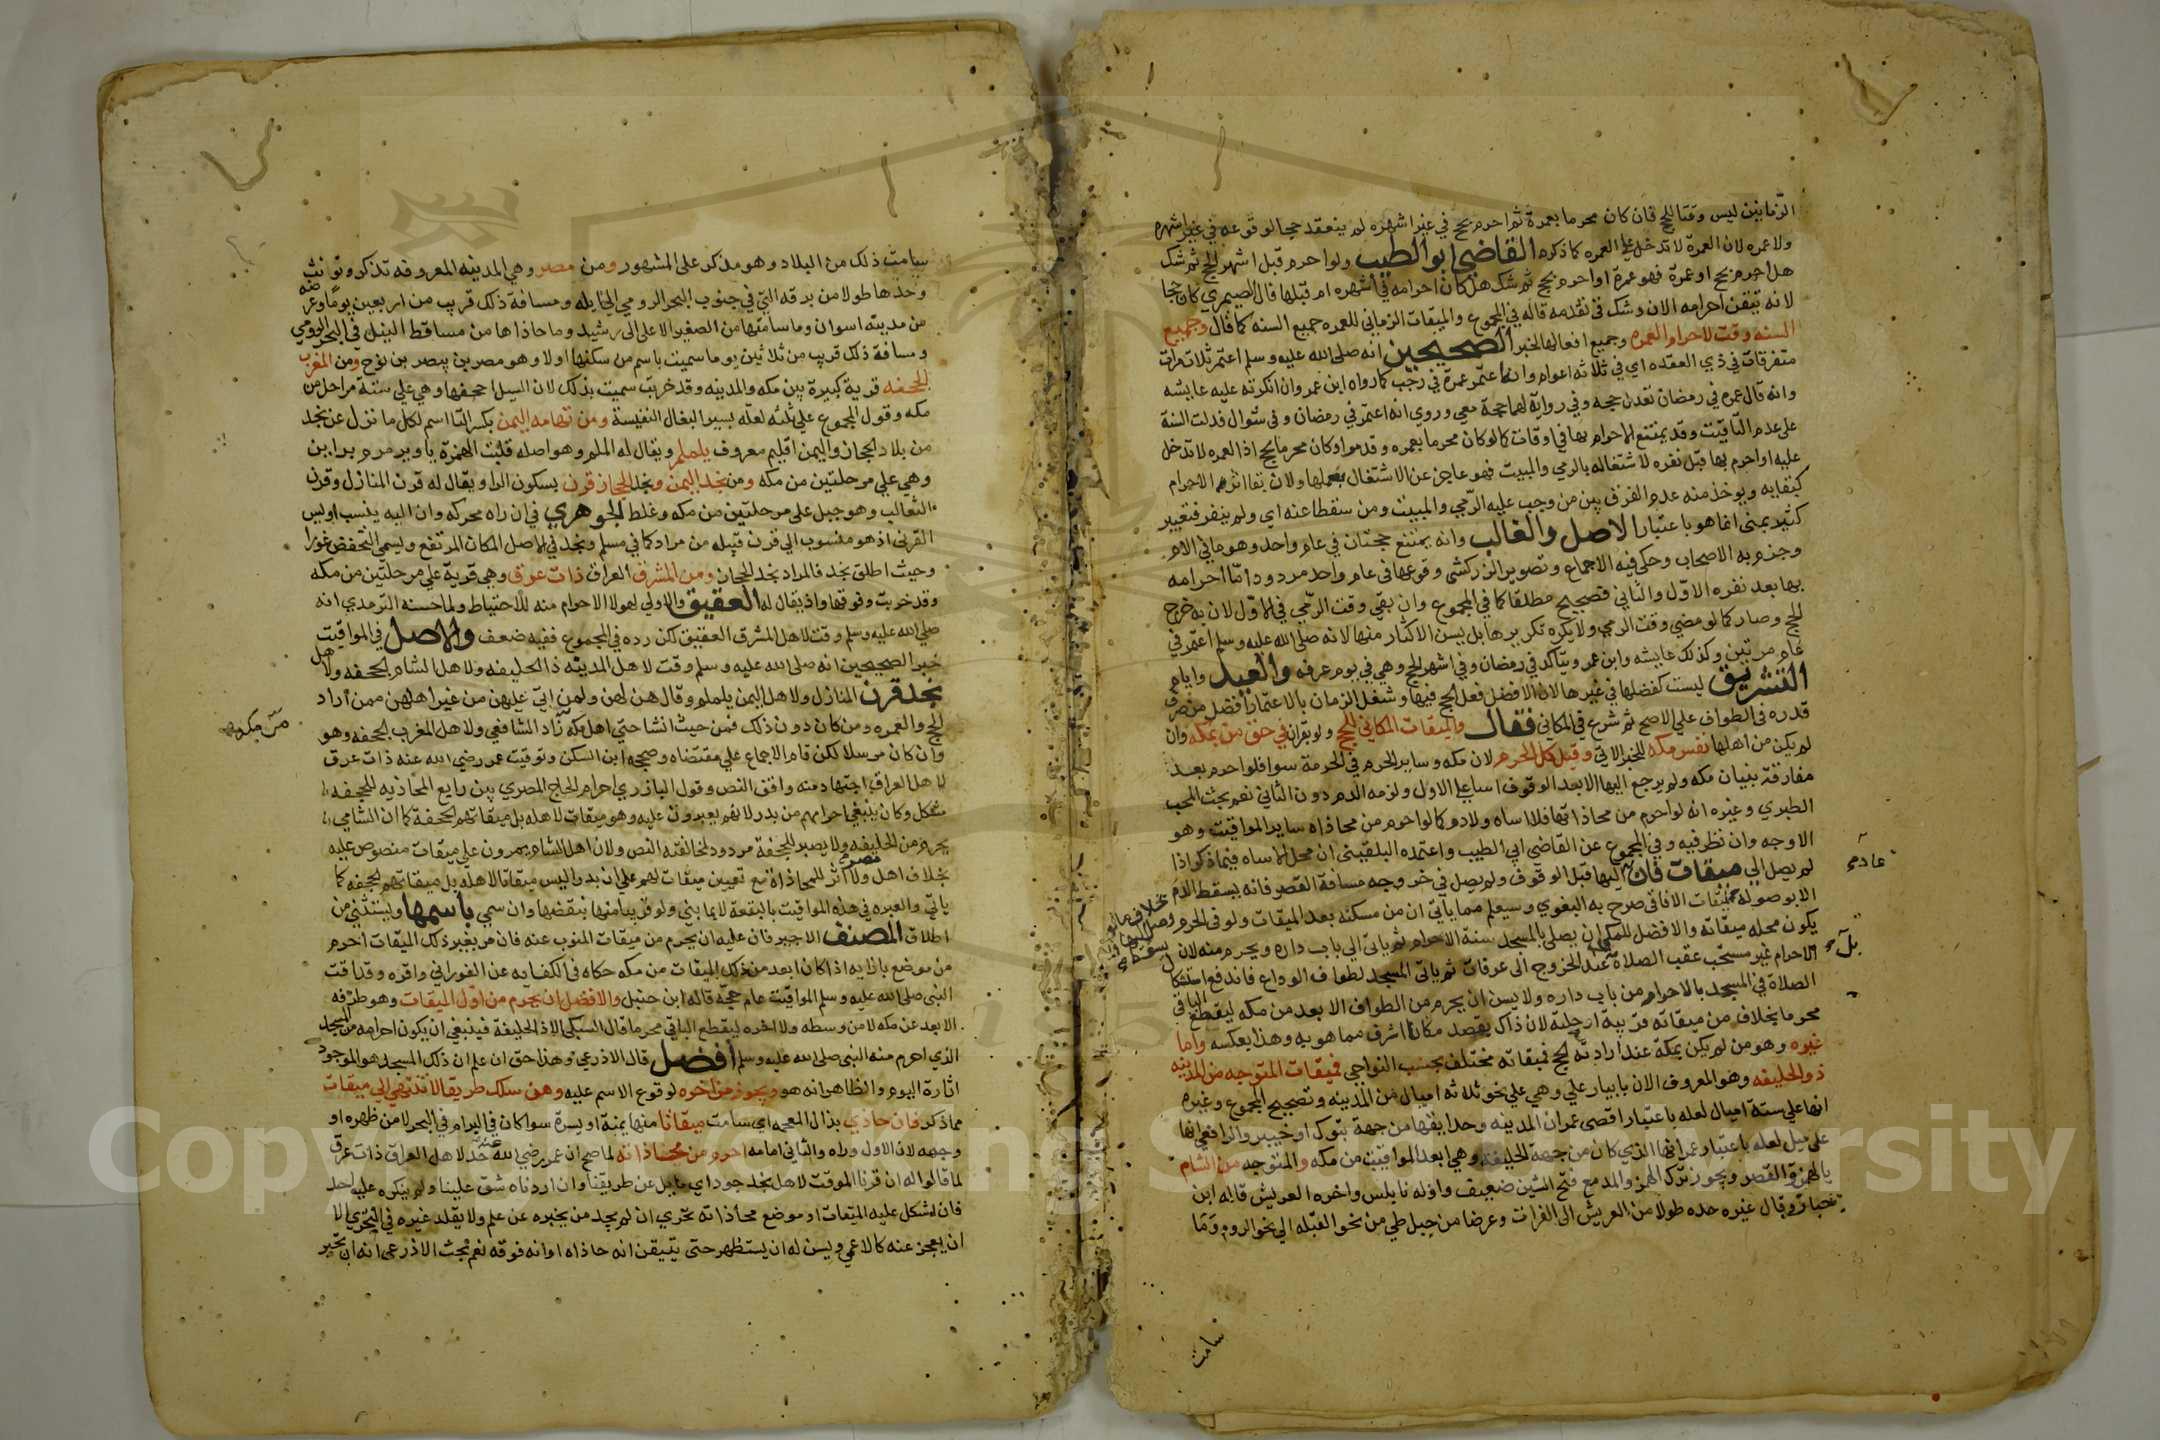 الزمانين ليس وقتا للحج فان كان محرما بعمرة ثم احرم بحج في غير اشهره لم ينعقد حجا لوقوعه في غير اشهره
ولا عمره لان العمرة لا تدخل على العمره كما ذكره القاضي ابو الطيب ولو احرم قبل اشهر الحج ثم شك
هل احرم بحج او عمرة فهو عمرة او احرم بحج ثم شك هل كان احرامه في اشهره ام قبلها قال الصيمري كان حجا
لانه تيقن احرامه الان وشك في تقدمه قاله في المجموع والميقات الزماني للعمره جميع السنه كما قال وجميع
السنه وقت لاحرام العمره وجميع افعالها لخبر الصحيحين انه صلى الله عليه وسلم اعتمر ثلاث مرات
متفرقات في ذي القعده اي في ثلاثه اعوام وانه اعتمر عمرة في رجب كما رواه ابن عمر وان انكرته عليه عايشه
وانه قال عمره في رمضان تعدل حجه وفي رواية لهما حجة معي وروي انه اعتمر في رمضان وفي شوال فدلت السنة
على عدم التاقيت وقد يمتنع الاحرام بها في اوقات كما لو كان محرما بعمره وقد مر او كان محرما بحج اذ العمره لا تدخل
عليه او احرم بها قبل نفره لاشتغاله بالرمي والمبيت فهو عاجز عن الاشتغال بعملها ولان بقا اثر الاحرام
كبقايه ويوخذ منه عدم الفرق بين من وجب عليه الرمي والمبيت ومن سقطا عنه اي ولم ينفر فتعبير
كثير بمنى انما هو باعتبار الاصل والغالب وانه يمتنع حجتان في عام واحد وهو ما في الام
وجزم به الاصحاب وحكي فيه الاجماع وتصوير الزركشي وقوعها في عام واحد مردود اما احرامه
بها بعد نفره الاول والثاني فصحيح مطلقا كما في المجموع وان بقي وقت الرمي في الاول لان به خرج
للحج وصار كما لو مضى وقت الرمي ولا يكره تكريرها بل يسن الاكثار منها لانه صلى الله عليه وسلم اعتمر في
عام مرتين وكذلك عايشه وابن عمر ويتاكد في رمضان وفي اشهر الحج وهي في يوم عرفه والعيد وايام
التشريق ليست كفضلها في غيرها لان الافضل فعل الحج فيها وشغل الزمان بالاعتمار افضل من صرف
قدره في الطواف على الاصح ثم شرع في المكاني فقال والميقات المكاني للحج ولو بقران في حق من بمكه وان
لم يكن من اهلها نفس مكه للخبر الاتي وقيل كل الحرم لان مكه وساير الحرم في الحرمة سوا فلو احرم بعد
مفارقة بنيان مكه ولم يرجع اليها الا بعد الوقوف اسا على الاول ولزمه الدم دون الثاني نعم بحث المحب
الطبري وغيره انه لو احرم من محاذاتها فلا اساه ولا دم كما لو احرم من محاذاه ساير المواقيت وهو
الاوجه وان نظر فيه وفي المجموع عن القاضي ابي الطيب واعتمده البلقيني ان محل الاساه فيما ذكر اذا
لم يصل الى ميقات فان اليها قبل الوقوف ولم يصل في خروجه مسافة القصر فانه يسقط الدم
الا بوصوله لميقات الافاقي صرح به البغوي وسيعلم مما ياتي ان من مسكنه بعد الميقات ولو في الحرم
يكون محله ميقاته والافضل للمكي ان يصلي بالمسجد سنة الاحرام ثم ياتي الى باب داره ويحرم منه لان
الاحرام غير مستحب عقب الصلاة عند الخروج الى عرفات ثم ياتي المسجد لطواف الوداع فاندفع استشكا
الصلاة في المسجد بالاحرام من باب داره ولا يسن ان يحرم من الطواف الابعد من مكه ليقطع الباقي
محرما بخلاف من ميقاته قريبة او حلته لان ذاك يقصد مكانا اشرف مما هو به وهذا بعكسه واما
غيره وهو من لم يكن بمكة عند ارادته الحج فميقاته مختلف بحسب النواحي فميقات المتوجه من المدينه
ذو الحليفه وهو المعروف الان بابيار علي وهي على نحو ثلاثه اميال من المدينه وتصحيح المجموع وغيره
انها على ستة اميال لعله باعتبار اقصى عمران المدينه وحدايقها من جهة تبوك او خيبر والرافعي انها
على ميل لعله باعتبار عمرانها الذي كان من جهة الحليفه وهي ابعد المواقيت من مكه والمتوجه من الشام
بالهمز والقصر ويجوز ترك الهمز والمد مع فتح الشين ضعيف واوله نابلس واخره العريش قاله ابن
حبان وقال غيره حده طولا من العريش الى الفرات وعرضا من جبل طي من نحو القبله الى نحو الروم وما
سامت
عاد
بل
سامت ذلك من البلاد وهو مذكر على المشهور ومن مصر وهي المدينه المعروفه تذكر وتونث
وحدها طولا من برقه التي في جنوب البحر الرومي الى ايله ومسافة ذلك قريب من اربعين يوما وعرضه
من مدينه اسوان وما سامتها من الصعيد الاعلى الى رشيد وما حاذاها من مساقط النيل في البحر الرومي
ومسافة ذلك قريب من ثلاثين يوما سميت باسم من سكنها اولا وهو مصر بن بيصر بن نوح ومن المغرب
الجحفه قرية كبيرة بين مكه والمدينه وقد خربت سميت بذلك لان السيل اجحفها وهي على ستة مراحل من
مكه وقول المجموع على ثلثه لعله بسير البغال النفيسة ومن تهامه اليمن بكسر التا اسم لكل ما نزل عن نجد
من بلاد الحجاز واليمن اقليم معروف يلملم ويقال له الملم وهو اصله قلبت الهمزة يا ويرمرم براين
وهي على مرحلتين من مكه ومن نجد اليمن ونجد الحجاز قرن بسكون الرا ويقال له قرن المنازل وقرن
الثعالب وهو جبل على مرحلتين من مكه وغلط الجوهري في ان راه محركه وان اليه ينسب اويس
القرني اذ هو منسوب الى قرن قبيله من مراد كما في مسلم ونجد في الاصل المكان المرتفع ويسمى المنخفض غورا
وحيث اطلق نجد فالمراد نجد الحجاز ومن المشرق العراق ذات عرق وهي قرية على مرحلتين من مكه
وقد خربت وفوقها واد يقال له العقيق والاولى لهولا الاحرام منه للاحتياط ولما حسنه الترمذي انه
صلى الله عليه وسلم وقت لاهل المشرق العقيق لكن رده في المجموع ففيه ضعف والاصل في المواقيت
خبر الصحيحين انه صلى الله عليه وسلم وقت لاهل المدينه ذا الحليفه ولاهل الشام الجحفه ولاهل
نجد قرن المنازل ولاهل اليمن يلملم وقال هن لهن ولمن اتى عليهن من غير اهلهن ممن اراد
الحج والعمره ومن كان دون ذلك فمن حيث انشا حتى اهل مكه زاد الشافعي ولاهل المغرب الجحفه وهو
وان كان مرسلا لكن قام الاجماع على مقتضاه وصححه ابن السكن وتوقيت عمر رضي الله عنه ذات عرق
لاهل العراق اجتهاد منه وافق النص وقول البارزي احرام الحاج المصري بين رابغ المحاذيه للجحفه
مشكل وكان ينبغي احرامهم من بدر لانهم يعبرون عليه وهو ميقات لاهله بل ميقاتهم الجحفة كما ان الشامي
يحرم من الحليفه ولا يصبر للجحفة مردود لمخالفته النص ولان اهل الشام يمرون على ميقات منصوص عليه
بخلاف اهل مصر ولا اثر للمحاذاة مع تعيين ميقات لهم على ان بدرا ليس ميقاتا لاهله بل ميقاتهم الجحفه كما
ياتي والعبره في هذه المواقيت بالبقعة لا بما بني ولو قريبا منها بنقضها وان سمي باسمها ويستثنى من
اطلاق المصنف الاجير فان عليه ان يحرم من ميقات المنوب عنه فان مر بغير ذلك الميقات احرم
من موضع بازايه اذا كان ابعد من ذلك الميقات من مكه حكاه في الكفايه عن الفوراني واقره وقد اقت
النبي صلى الله عليه وسلم المواقيت عام حجه قاله ابن حنبل والافضل ان يحرم من اول الميقات وهو طرفه
الابعد عن مكه لا من وسطه ولا اخره ليقطع الباقي محرما قال السبكي الا ذا الحليفة فينبغي ان يكون احرامه من المسجد
الذي احرم منه النبي صلى الله عليه وسلم افضل قال الاذرعي وهذا حق ان علم ان ذلك المسجد هو الموجود
اثاره اليوم والظاهر انه هو ويجوز من اخره لوقوع الاسم عليه ومن سلك طريقا لا تنتهي الى ميقات
مما ذكر فان حاذى بذال المعجمه اي سامت ميقاتا منها يمنة او يسرة سوا كان في البر ام في البحر لا من ظهره او
وجهه لان الاول وراه والثاني امامه احرم من محاذاته لما صح ان عمر رضي الله عنه حد لاهل العراق ذات عرق
لما قالوا له ان قرنا الموقت لاهل نجد جور اي مايل عن طريقنا وان اردناه شق علينا ولم ينكره عليه احد
فان اشكل عليه الميقات او موضع محاذاته تحرى ان لم يجد من يخبره عن علم ولا يقلد غيره في التحري الا
ان يعجز عنه كالاعمى ويسن له ان يستظهر حتى يتيقن انه حاذاه او انه فوقه نعم بحث الاذرعي انه ان تحير
من مكه
Copy
King S
rsity